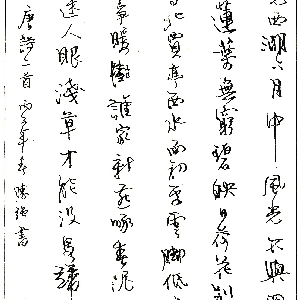 西湖六月中風光不與四
蓮葉無窮碧映日荷花別
寺北賈亭西水面初平雲腳低
爭暖樹誰家新燕啄春泥
迷人眼淺草才能沒馬蹄
唐詩二首 丙 年春 陳 書